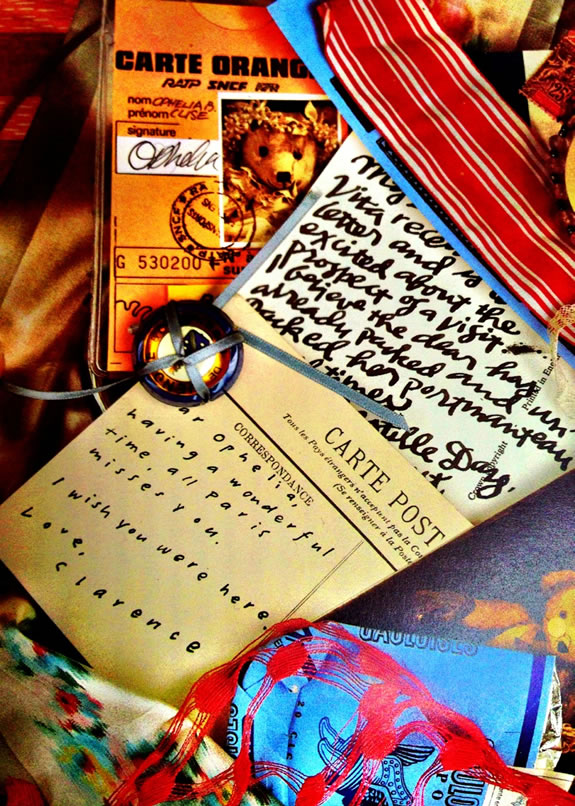 CARTE ORANG
RATP SNCF
nom OPHELIA B.
prénom CLISE
signature
Ophelia
G 530200
letter and is
excited about the
prospect of a visit.
I believe the dear has
already packed and un-
packed her portmanteau
times.
Day,
Printed in En
Crown Copyright
CARTE POST
Tous les Pays étrangers n'acceptent pas la Co
(Se renseigner à la Poste
CORRESPONDANCE
ar Ophelia,
having a wonderful
time. all Paris
misses you.
I wish you were here.
Love,
Clarence
GAULOISES
20 CIG